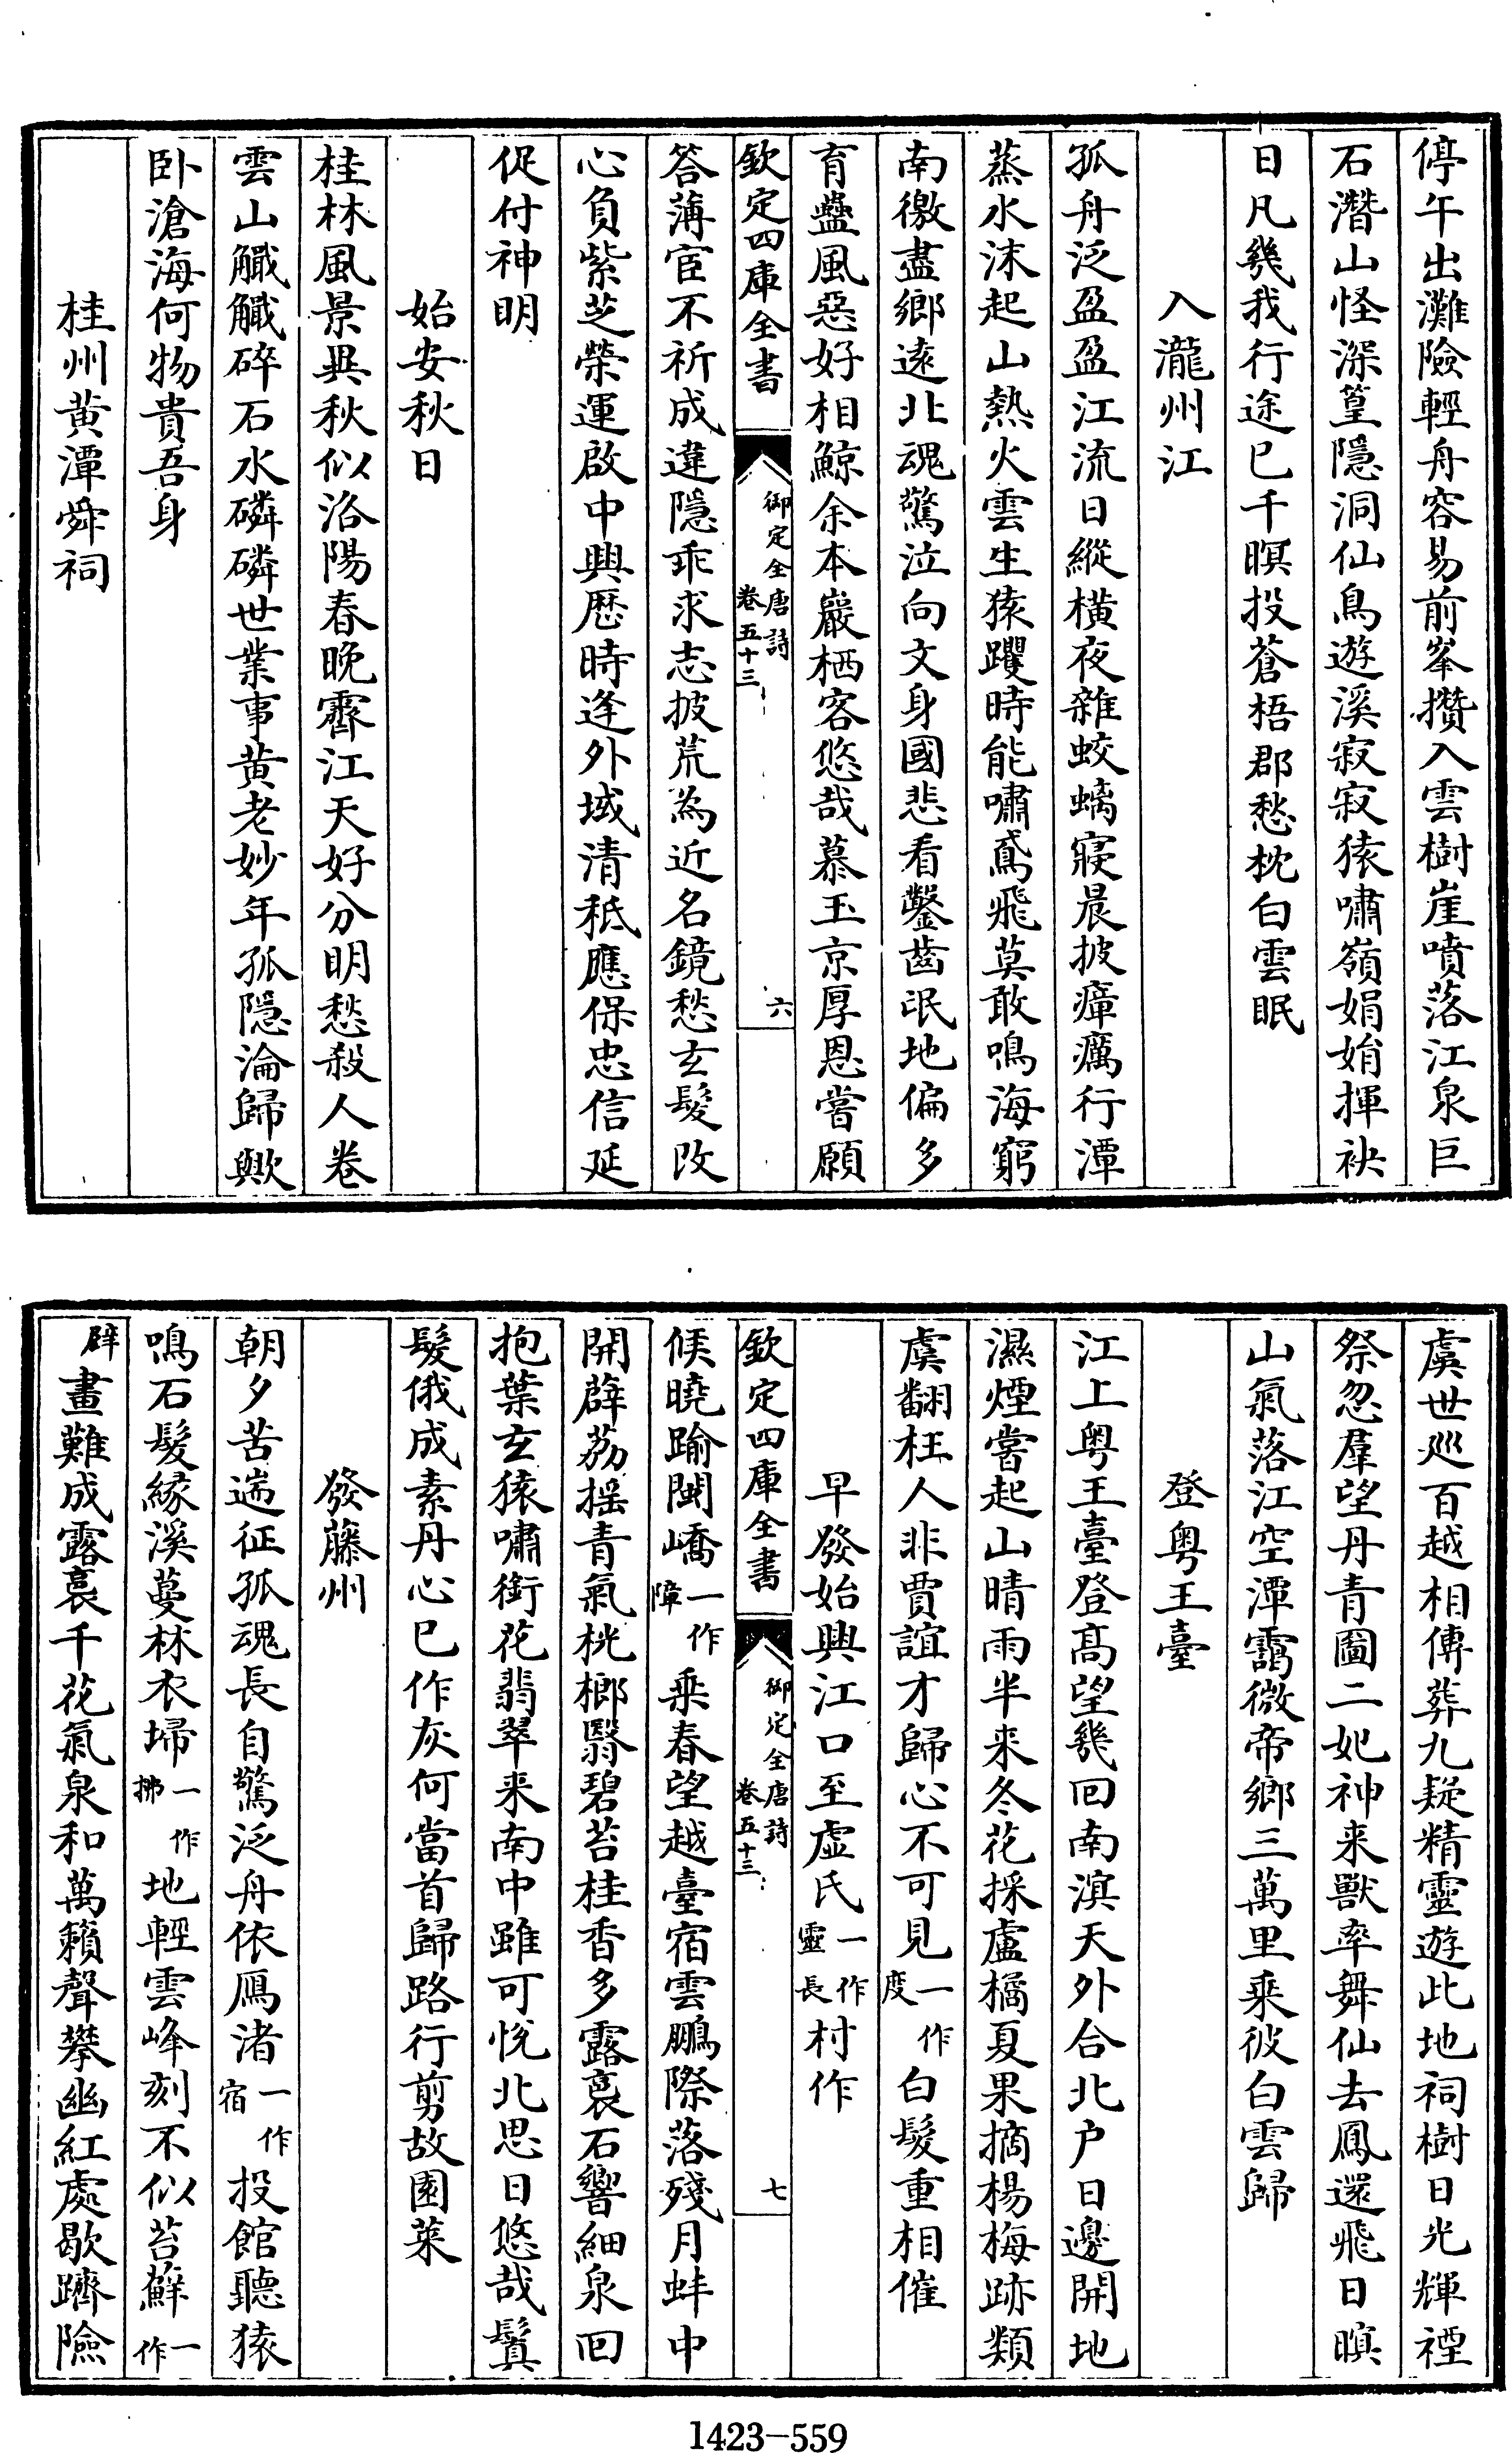 停午出灘險輕舟容易前峯攢入雲樹崖噴落江泉巨
石潛山怪深篁隱洞仙鳥遊溪寂寂猿嘯嶺娟娟揮袂
日凡幾我行途已千暝投蒼梧郡愁枕白雲眠
入瀧州江
孤舟泛盈盈江流日縱橫夜雜蛟螭寢晨披瘴癘行潭
蒸水沫起山熱火雲生猿躩時能嘯鳶飛莫敢鳴海窮
南徼盡鄉遠北魂驚泣向文身國悲看鑿齒氓地偏多
育蠱風惡好相鯨余本巖栖客悠哉慕玉京厚恩嘗願
欽定四庫全書
御定全唐詩
卷五十三
六
答薄宦不祈成違隱乖求志披荒為近名鏡愁玄髮改
心負紫芝榮運啟中興厯時逢外域清秪應保忠信延
促付神明
始安秋日
桂林風景異秋似洛陽春晚霽江天好分明愁殺人卷
雲山觽觽碎石水磷磷世業事黄老妙年孤隱淪歸歟
卧滄海何物貴吾身
桂州黄潭舜祠
虞世巡百越相傳葬九疑精靈遊此地祠樹日光輝禋
祭忽羣望丹青圖二妃神来獸率舞仙去鳳還飛日暝
山氣落江空潭靄微帝鄉三萬里乘彼白雲歸
登粤王臺
江上粤王臺登髙望幾回南溟天外合北户日邊開地
濕煙嘗起山晴雨半来冬花採盧橘夏果摘楊梅跡類
虞翻枉人非賈誼才歸心不可見一作度白髮重相催
早發始興江口至虚氏一作靈長村作
欽定四庫全書
御定全唐詩
卷五十三
七
候曉踰閩嶠一作障乘春望越臺宿雲鵬際落殘月蚌中
開薜荔揺青氣桄榔翳碧苔桂香多露裛石響細泉回
抱葉玄猿嘯銜花翡翠来南中雖可悅北思日悠哉鬒
髮俄成素丹心已作灰何當首歸路行剪故園萊
發藤州
朝夕苦遄征孤魂長自驚泛舟依鴈渚一作宿投館聽猿
鳴石髮縁溪蔓林衣埽一作拂地輕雲峰刻不似苔蘚一作
辟畫難成露裛千花氣泉和萬籟聲攀幽紅處歇躋險
1423-559